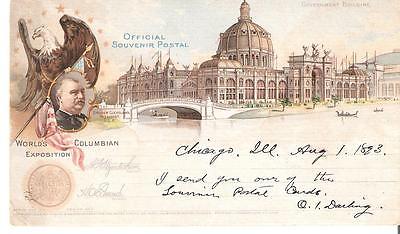 OFFICIAL
SOUVENIR POSTAL
GOVERNMENT BUILDING
WORLD'S COLUMBIAN
EXPOSITION
Chicago, Ill. Aug 1. 1893.
I send you one of the
Souvenir Postal Cards.
O. I. Darling.